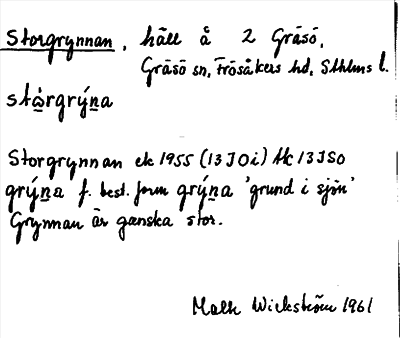 Storgrynnan, häll å 2 Gräsö,
Gräsö sn, Frösåkers hd, Sthlms l.
stὼrgrýn̲a
Storgrynnan ek 1955 (13 I 0i) Hc 13 I S0
grýn̲a f. best. form grýn̲a 'grund i sjön'
Grynnan är ganska stor.
Malk Wickström 1961